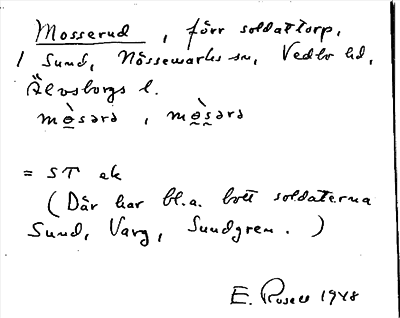 Mosserud, förr soldattorp,
/ Sund, Nössemarks sn, Vedbo hd,
Älvsborgs l.
mò̲sərə, mò̲s̲ərə
= ST ek
(Där har bl.a. bott soldaterna
Sund, Varg, Sundgren.)
E. Rosell 1948